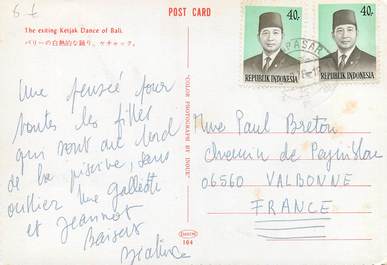 POST CARD
The exiting Ketjak Dance of Bali.
バリーの白熱的な踊り、ケチャック。
Une pensée pour
toutes les filles
qui sont au bord
de la piscine, sans
oublier Mme
et Jeannot
Baisers
"COLOR PHOTOGRAPHY BY INOUE"
104
40.-
REPUBLIK INDONESIA
40.-
REPUBLIK INDONESIA
PASAR
Mme Paul Breton
Chemin de
06560 VALBONNE
FRANCE